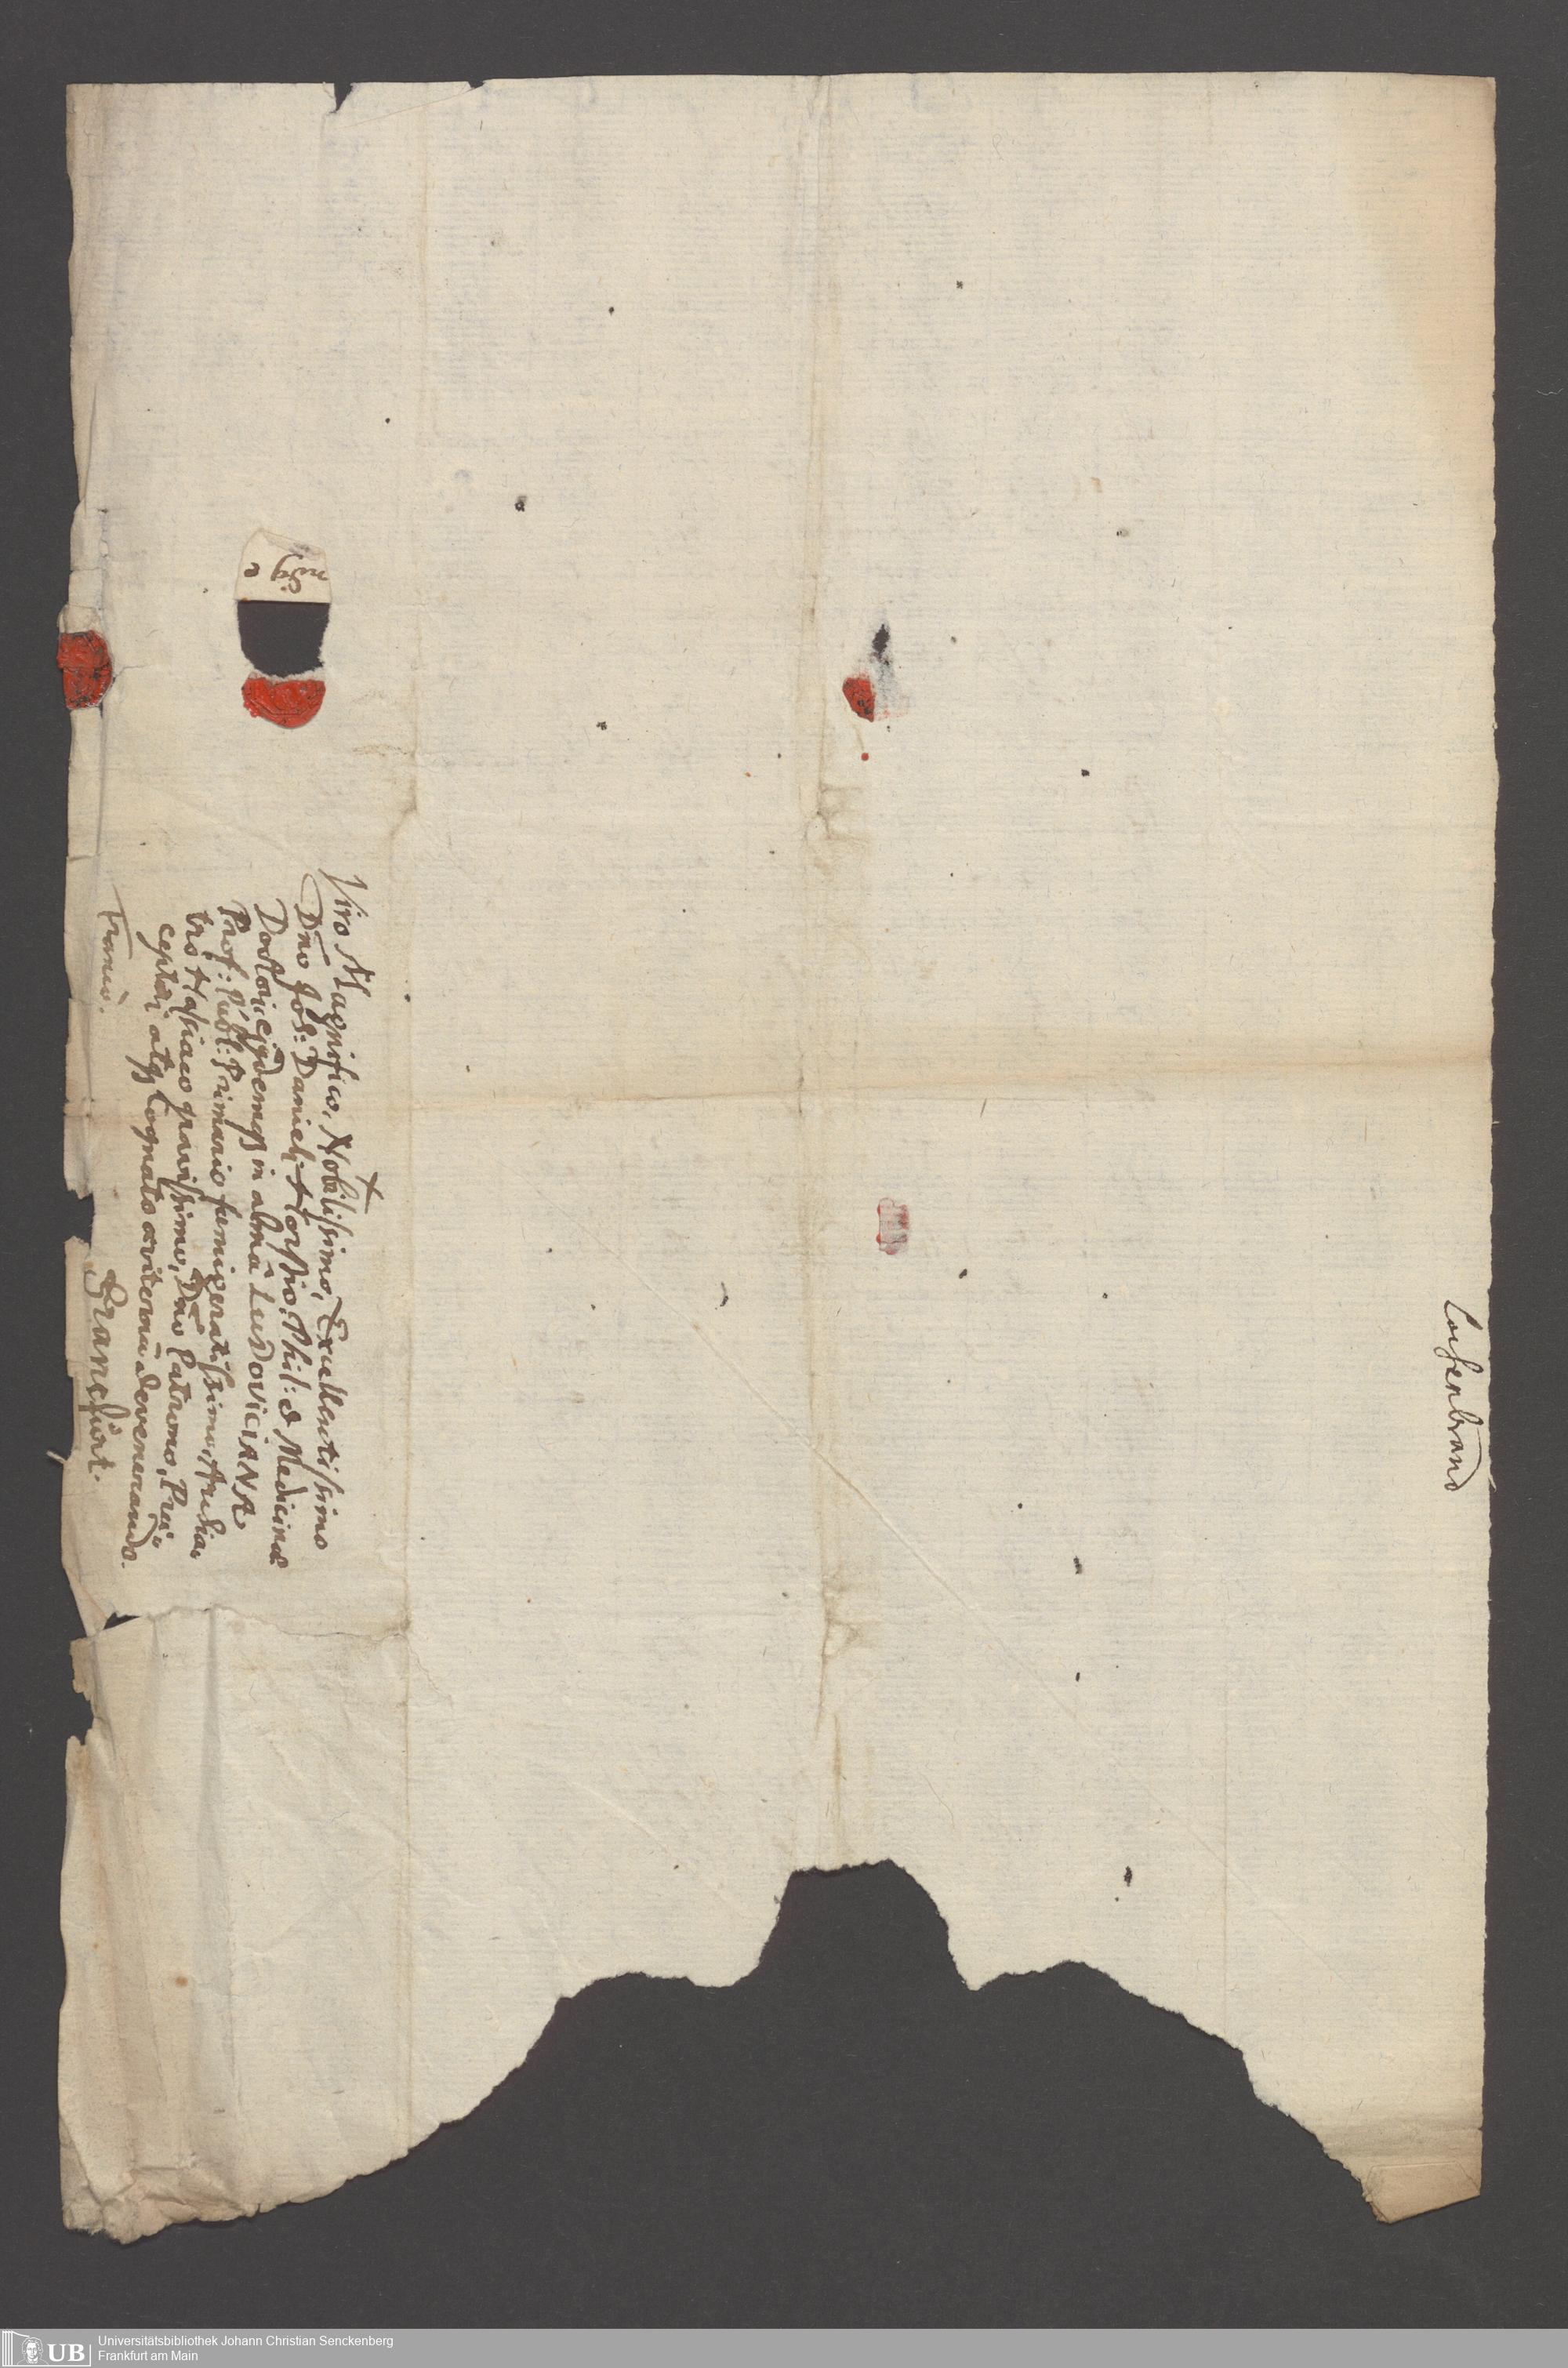 Viro Magnifico, Nobilissimo, Excellentissimo
Dn̄o Joh: Danieli Horstio, Phil: & Medicinæ
Doctori, ejusdemq́ in almâ LudoviciANA
Prof: Publ: Primario famigeratissimo, Archia-
tro Hassiaco gravissimo, Dn̄o Patrono, Præ-
ceptori atq́ Cognato æviternū devenerando.
Francò.
Francfürt.
Lossenbrand
Universitätsbibliothek Johann Christian Senckenberg
Frankfurt am Main
UB